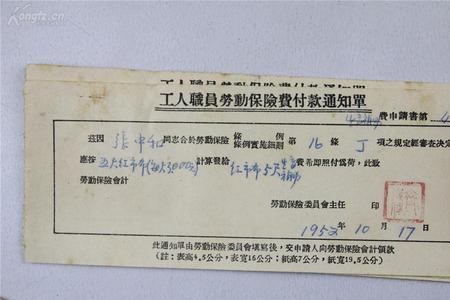 Kongfz.com
工人職員勞動保險費付款通知單
工人職員勞動保險費付款通知單
費申請書第 4
茲因 張中和 同志合於勞動保險 條例 條例實施細則 第 16 條 丁 項之規定經審查決定
應按 五尺紅市布 計算發給 紅市布5尺 費希即照付爲荷,此致
勞動保險會計
勞動保險委員會主任 印
1952年 10月 17日
此通知單由勞動保險委員會填寫後,交申請人向勞動保險會計領款
(註:表高4.5公分,表寬16公分;紙高7公分,紙寬19.5公分)